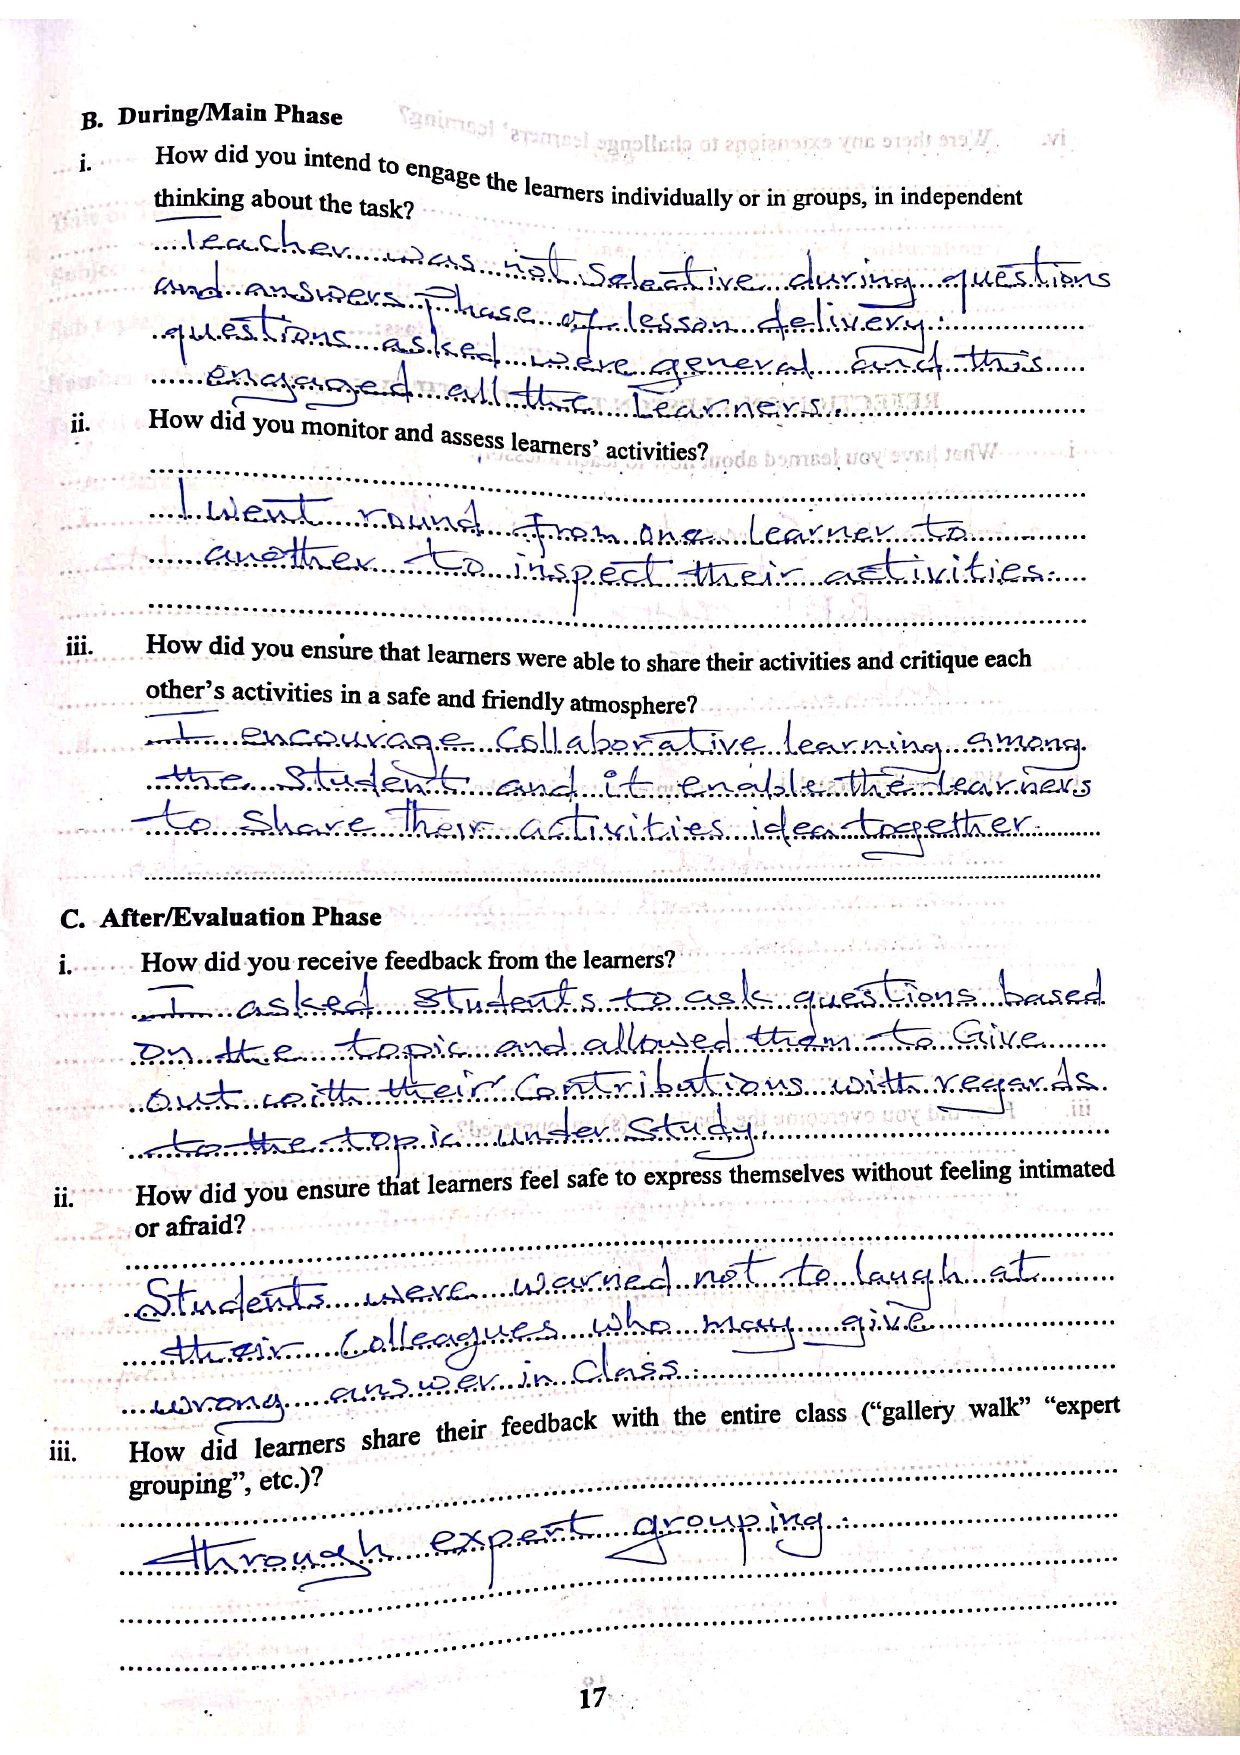 B. During/Main Phase
i. How did you intend to engage the learners individually or in groups, in independent
thinking about the task?
Teacher was not Selective during questions
and answers Phase of lesson delivery.
questions asked were general and this
engaged all the Learners.
ii. How did you monitor and assess learners' activities?
I went round from one learner to
another to inspect their activities.
iii. How did you ensure that learners were able to share their activities and critique each
other's activities in a safe and friendly atmosphere?
I encourage Collaborative learning among
the Student and it enable the Learners
to Share their activities idea together.
C. After/Evaluation Phase
i. How did you receive feedback from the learners?
I asked Students to ask questions based
on the topic and allowed them to Give
out with their Contributions with regards
to the topic under Study.
ii. How did you ensure that learners feel safe to express themselves without feeling intimated
or afraid?
Students were warned not to laugh at
their Colleagues who may give
wrong answer in Class.
iii. How did learners share their feedback with the entire class (“gallery walk” “expert
grouping”, etc.)?
through expert grouping.
17